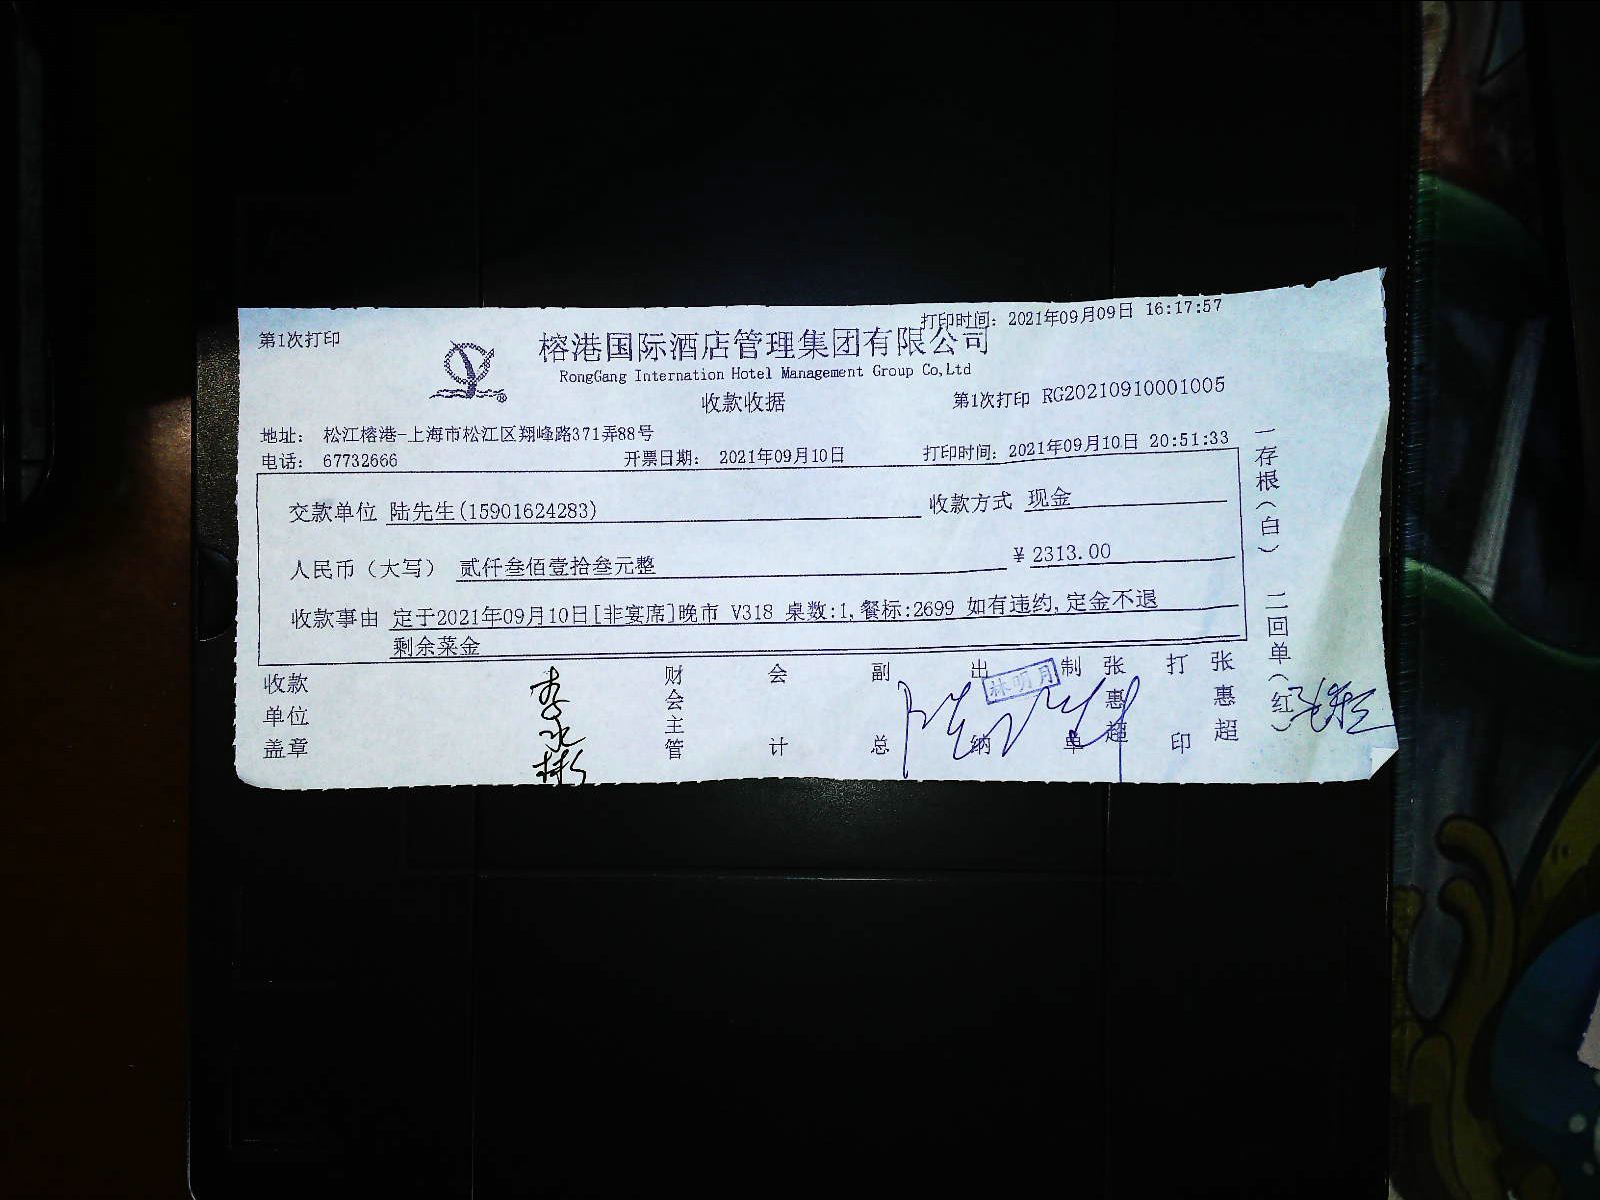 第1次打印
打印时间: 2021年09月09日 16:17:57
榕港国际酒店管理集团有限公司
RongGang Internation Hotel Management Group Co,Ltd
收款收据
第1次打印 RG20210910001005
地址: 松江榕港-上海市松江区翔峰路371弄88号
电话: 67732666
开票日期: 2021年09月10日
打印时间: 2021年09月10日 20:51:33
交款单位 陆先生(15901624283)
收款方式 现金
人民币(大写) 贰仟叁佰壹拾叁元整
¥ 2313.00
收款事由 定于2021年09月10日[非宴席]晚市 V318 桌数:1,餐标:2699 如有违约,定金不退
剩余菜金
收款单位盖章
李永彬
财会主管
会计
副总
出纳
林明月
制单
张惠超
打印
张惠超
一存根(白) 二回单(红)